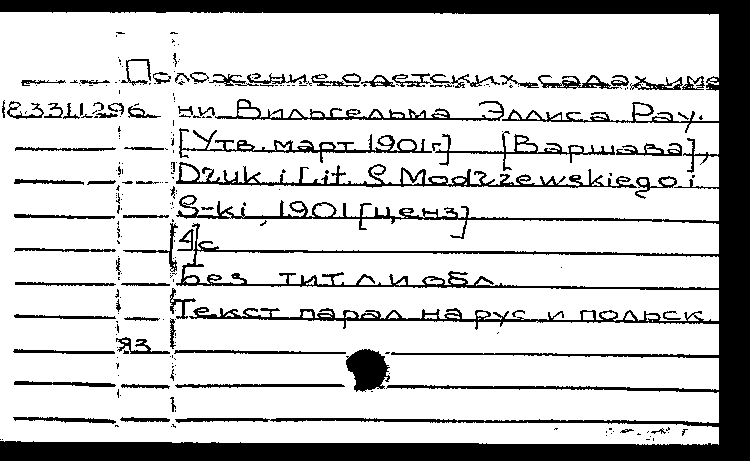 Положение о детских садах име
18.3311.296 ни Вильгельма Эллиса Рау.
[Утв. март 1901г.] [Варшава],
Druk i Lit. S. Modrzewskiego i
S-ki, 1901 [ценз]
[4]с
Без тит. л. и обл.
Текст парал на рус и польск
ЯЗ